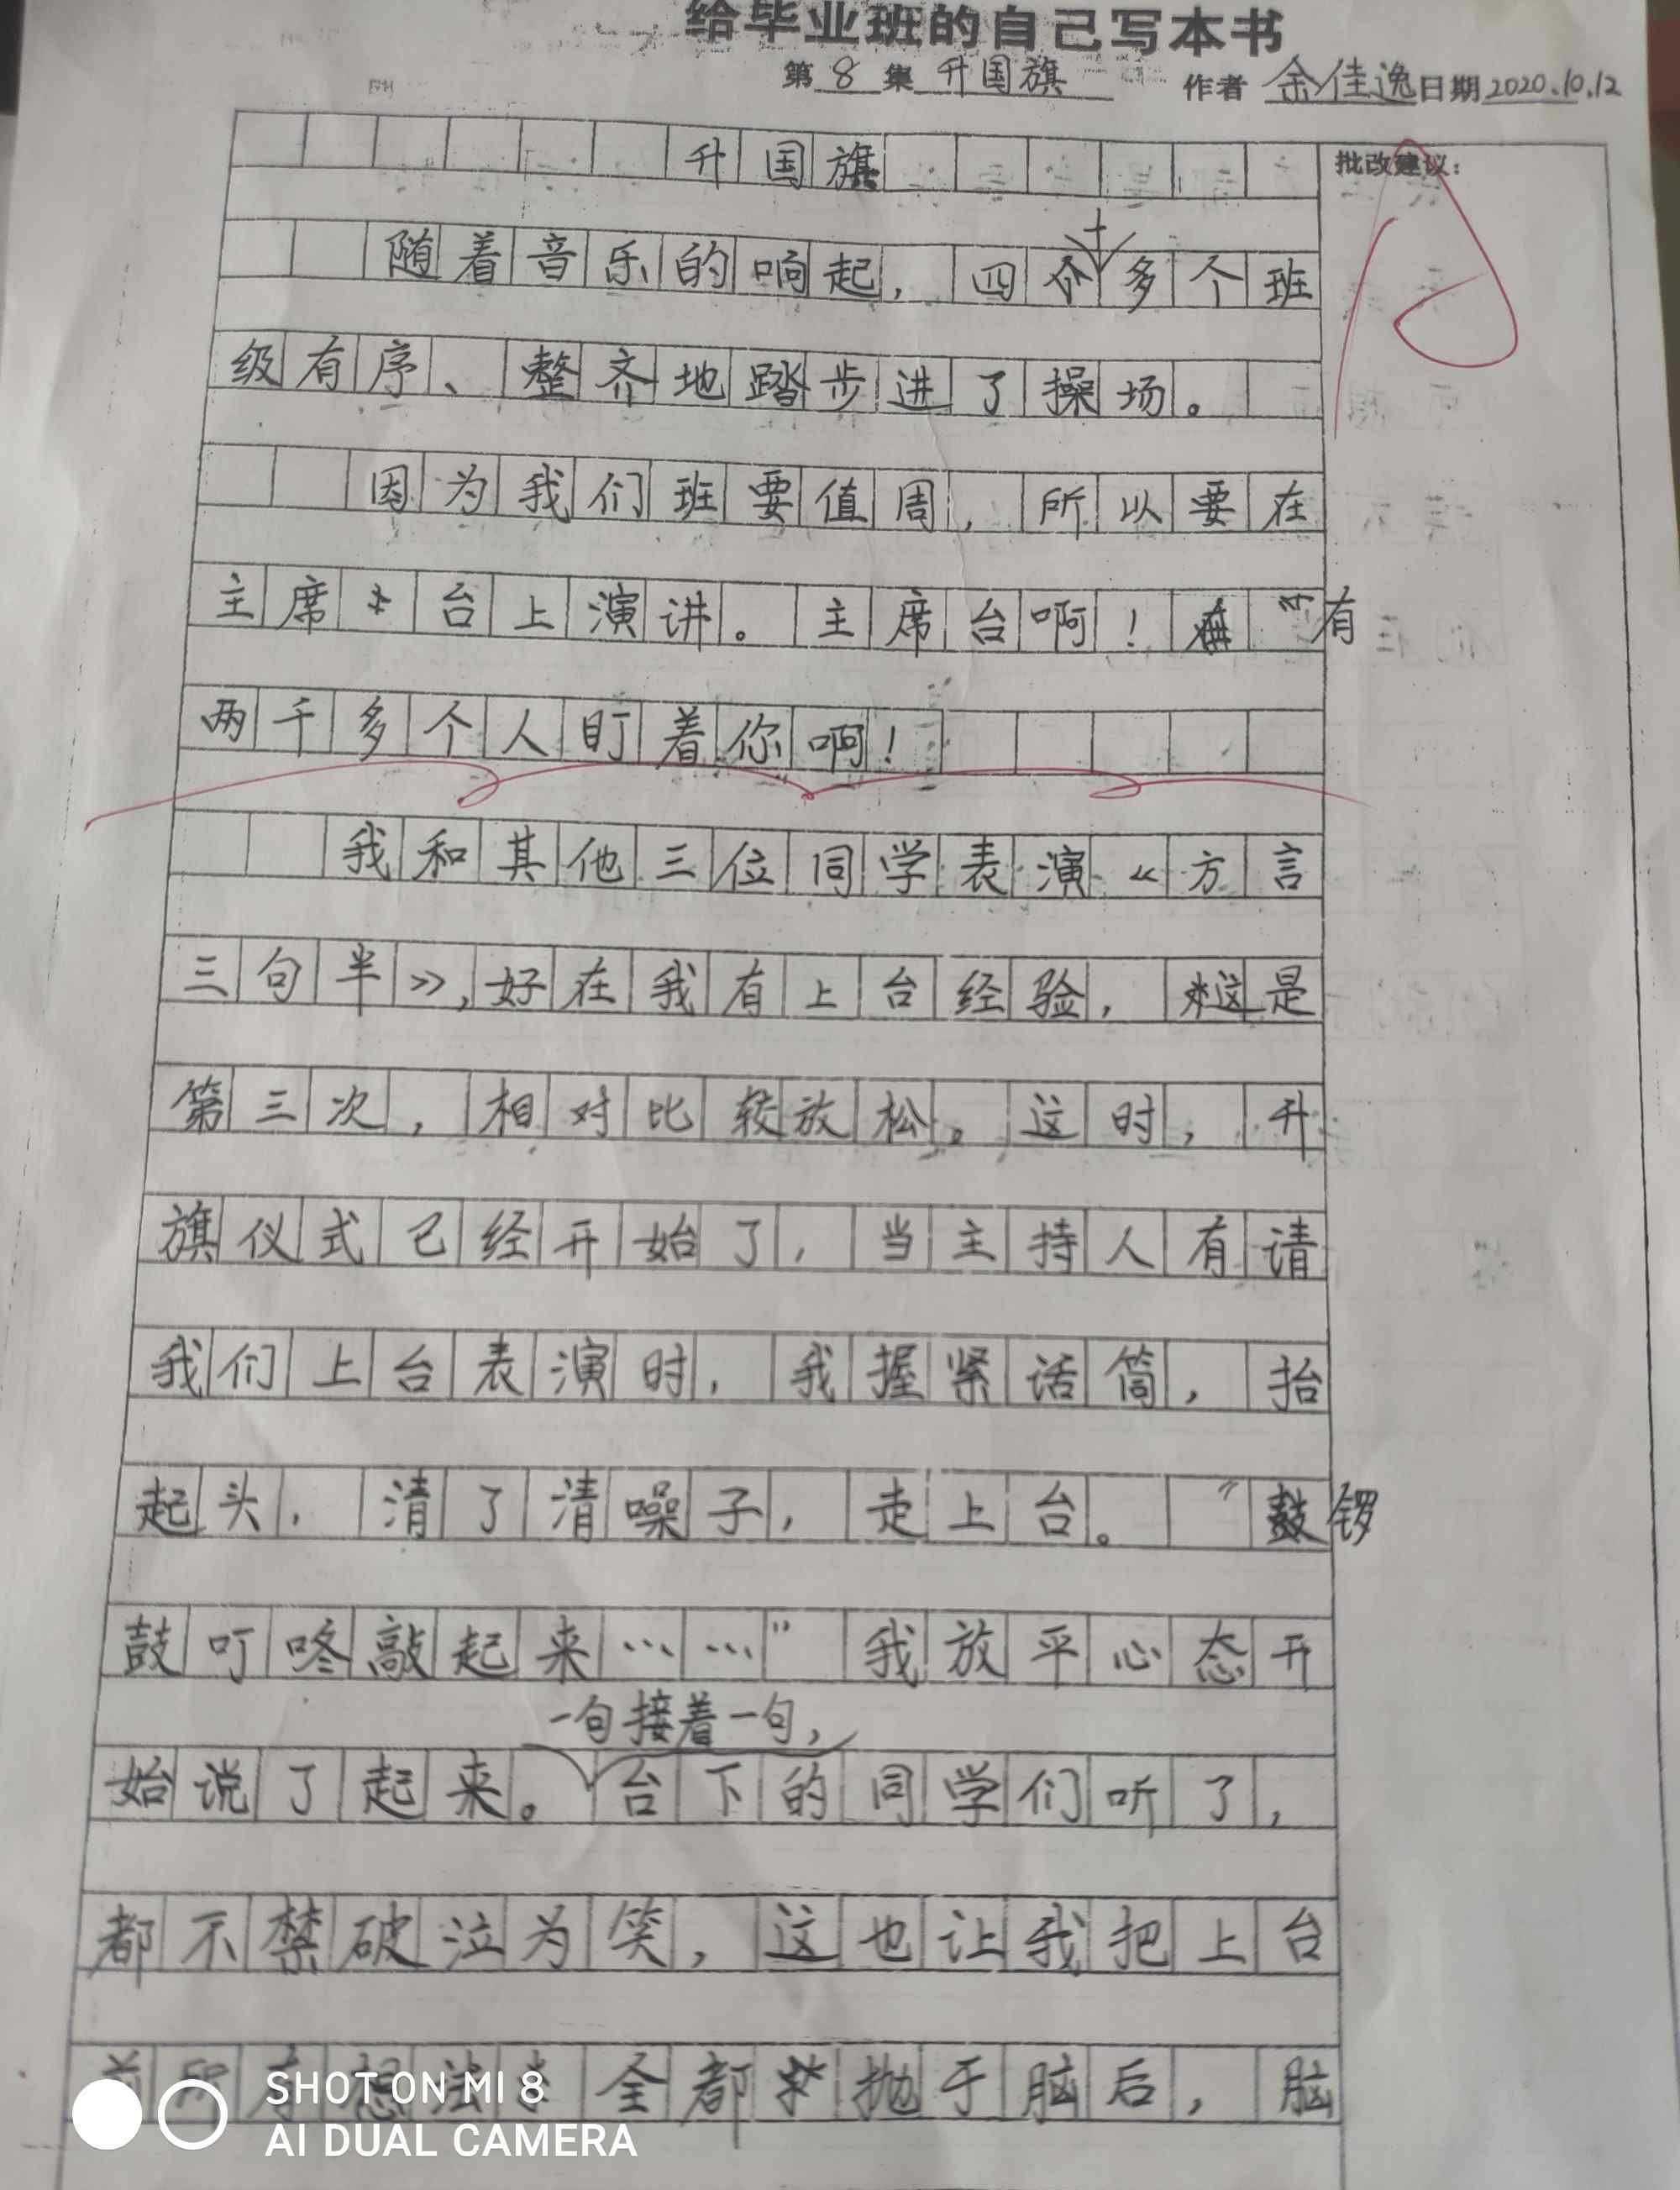 给毕业班的自己写本书
第 8 集 升国旗 作者 金佳逸 日期 2020.10.12
批改建议：
升国旗
随着音乐的响起，四十多个班
级有序、整齐地踏步进了操场。
因为我们班要值周，所以要在
主席台上演讲。主席台啊！有
两千多个人盯着你啊！
我和其他三位同学表演《方言
三句半》，好在我有上台经验，这是
第三次，相对比较放松。这时，升
旗仪式已经开始了，当主持人有请
我们上台表演时，我握紧话筒，抬
起头，清了清噪子，走上台。“锣
鼓叮咚敲起来……”我放平心态开
一句接着一句，
始说了起来。台下的同学们听了，
都不禁破泣为笑，这也让我把上台
想法全都抛于脑后，脑
SHOT ON MI 8
AI DUAL CAMERA